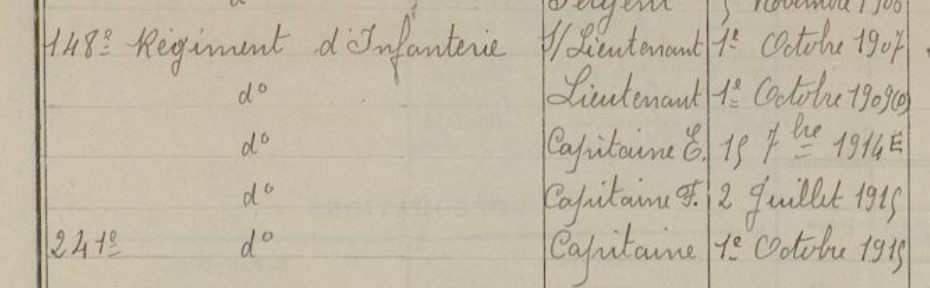 Sergent 5 Novembre 1906
148e Régiment d'Infanterie S/Lieutenant 1er Octobre 1907
do Lieutenant 1er Octobre 1909(D)
do Capitaine E. 15 7bre 1914 E
do Capitaine F. 2 Juillet 1915
241e do Capitaine 1er Octobre 1915